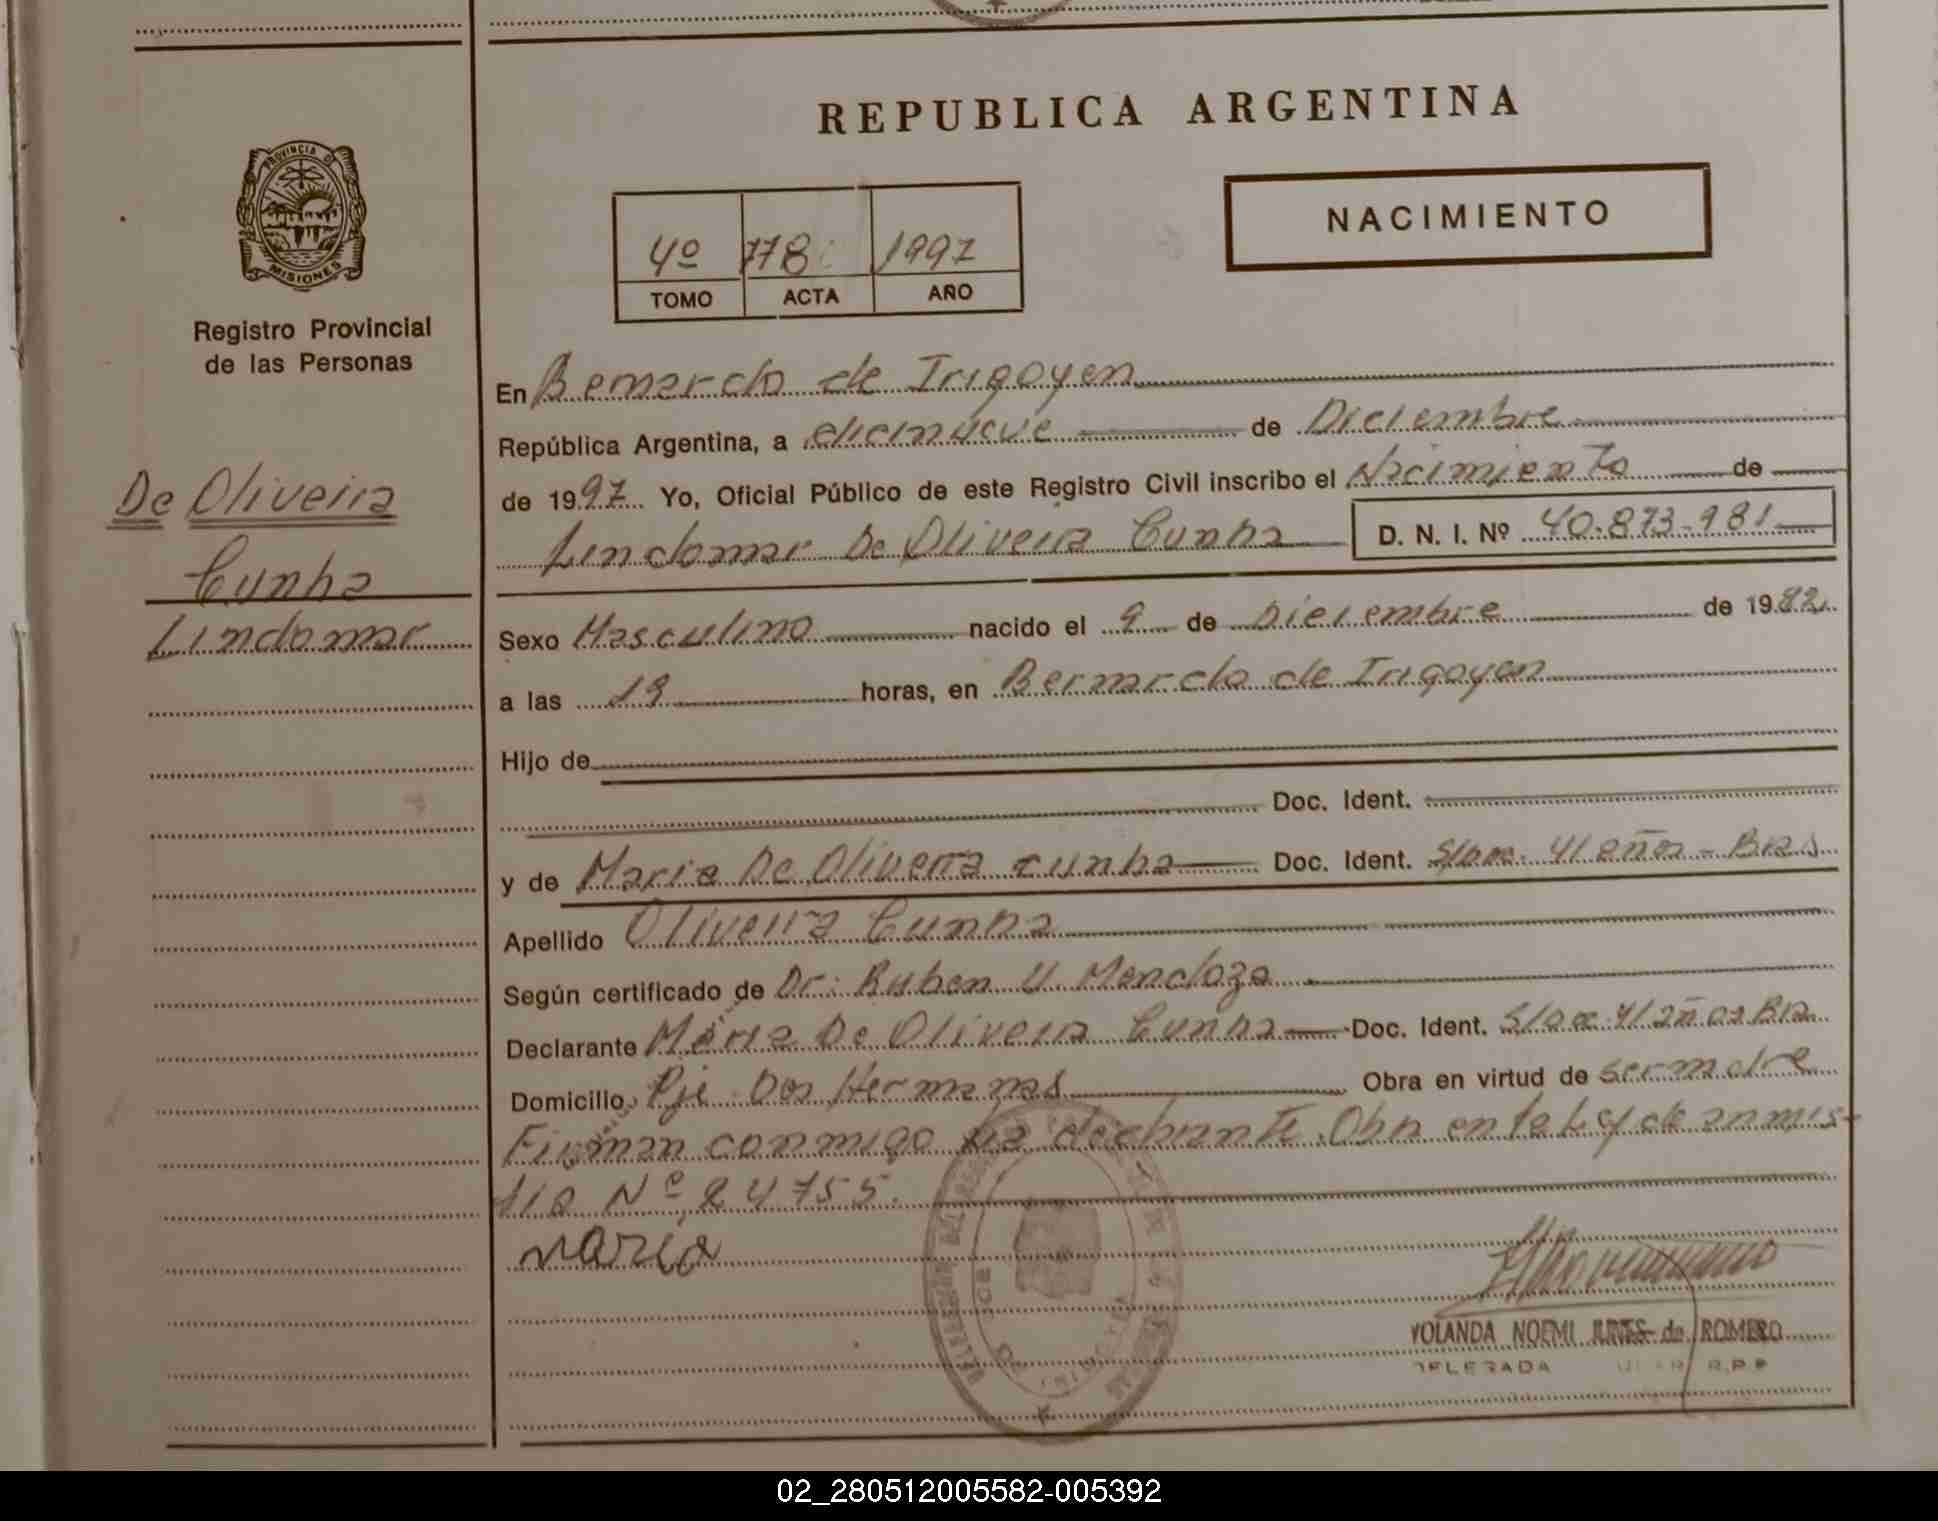 PROVINCIA DE
MISIONES
Registro Provincial
de las Personas
De Oliveira
Cunha
Lindomar
REPUBLICA ARGENTINA
NACIMIENTO
4º 778 1997
TOMO ACTA AÑO
En Bernardo de Irigoyen
República Argentina, a diecinueve de Diciembre
de 1997 Yo, Oficial Público de este Registro Civil inscribo el Nacimiento de
Lindomar De Oliveira Cunha D. N. I. Nº 40.873.981
Sexo Masculino nacido el 9 de Diciembre de 1982
a las 19 horas, en Bernardo de Irigoyen
Hijo de
Doc. Ident.
y de Maria De Oliveira Cunha Doc. Ident. S/doc. 41 años - Bras
Apellido Oliveira Cunha
Según certificado de Dr: Ruben V. Mendoza
Declarante Maria De Oliveira Cunha Doc. Ident. S/doc 41 años Bra
Domicilio Pje Dos Hermanas Obra en virtud de ser madre
Firman conmigo la declarante. Obra en la Ley de amnis-
tia Nº 24755.
maria
YOLANDA NOEMI de ROMERO
DELEGADA R.P.P
02_280512005582-005392